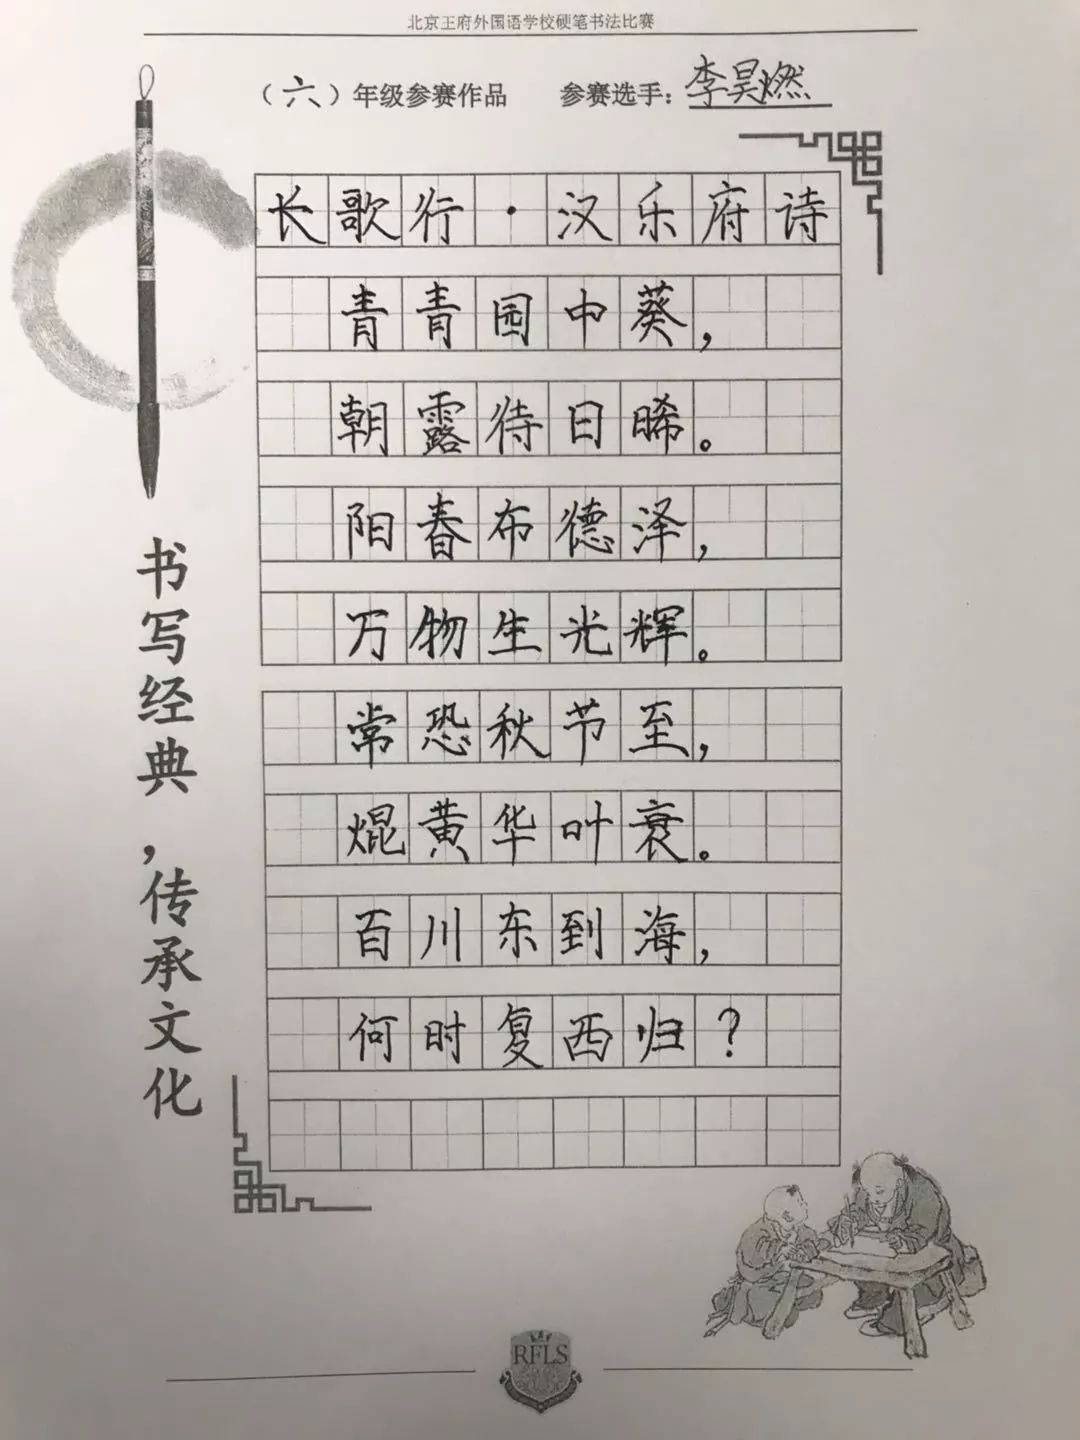 北京王府外国语学校硬笔书法比赛
（六）年级参赛作品 参赛选手：李昊燃
长歌行·汉乐府诗
青青园中葵，
朝露待日晞。
阳春布德泽，
万物生光辉。
常恐秋节至，
焜黄华叶衰。
百川东到海，
何时复西归？
书写经典，传承文化
RFLS